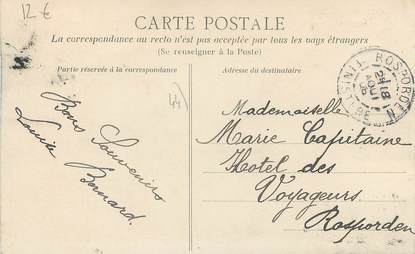 12 €
CARTE POSTALE
La correspondance au recto n'est pas acceptée par tous les pays étrangers
(Se renseigner à la Poste)
Partie réservée à la correspondance
Adresse du destinataire
ROSPORDEN
FINISTÈRE
Bons Souvenirs
Louise Bonnard.
Mademoiselle
Marie Capitaine
Hotel des
Voyageurs
Rosporden